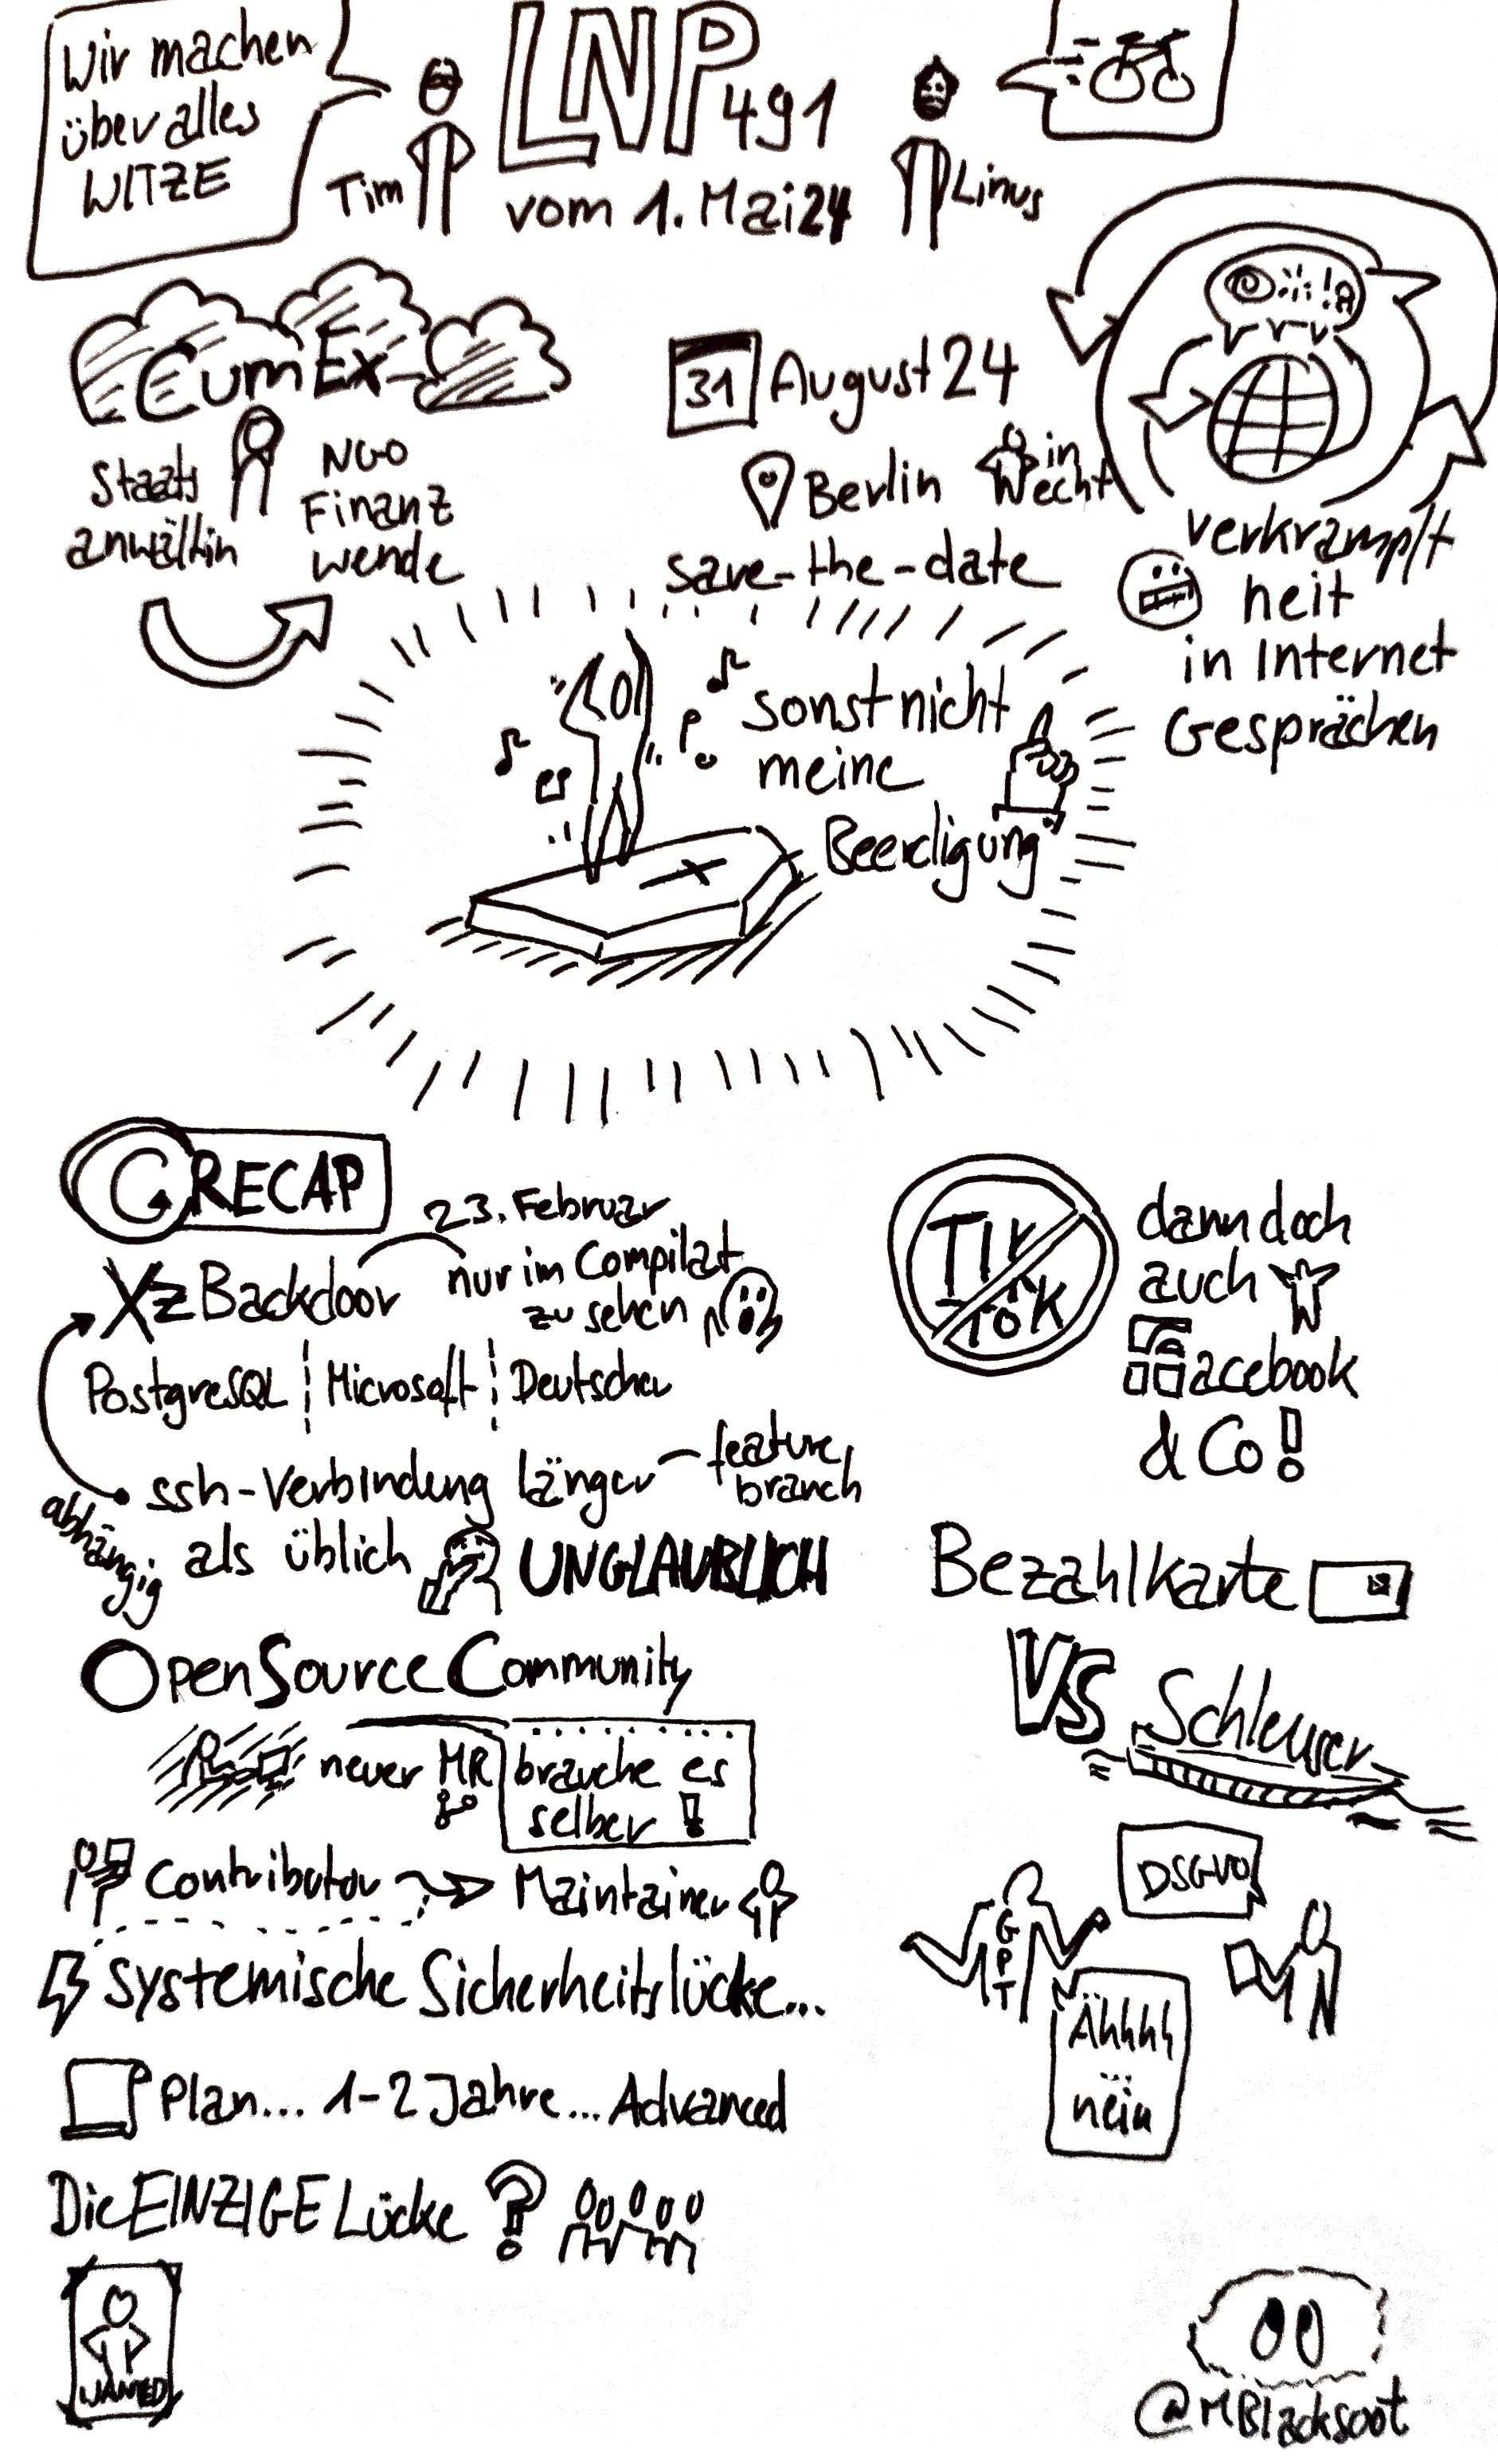 Wir machen
über alles
WITZE
Tim
LNP 491
vom 1. Mai 24
Linus
CumEx
Staats
anwältin
NGO
Finanz
wende
31 August 24
Berlin
in
Echt
save-the-date
verkrampft
heit
in Internet
Gesprächen
sonst nicht
meine
Beerdigung
RECAP
23. Februar
Xz Backdoor
nur im Compilat
zu sehen
PostgreSQL | Microsoft | Deutscher
ssh-Verbindung länger
als üblich
feature
branch
abhängig
UNGLAUBLICH
OpenSource Community
neuer MR
brauche es
selber !
Contributor
Maintainer
Systemische Sicherheitslücke...
Plan... 1-2 Jahre... Advanced
Die EINZIGE Lücke ?
WANTED
TIK
TOK
dann doch
auch
Facebook
& Co!
Bezahlkarte
VS
Schleuser
DSGVO
GPT
Ähhhh
...
nein
@MBlacksoot